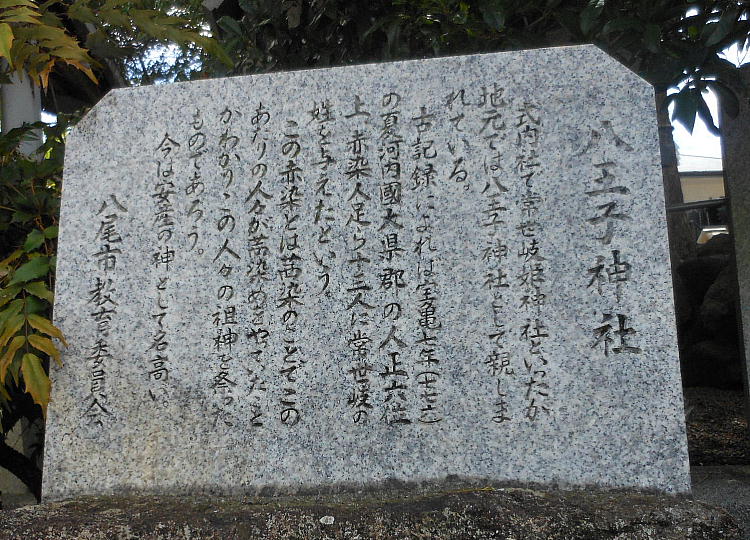 八王子神社
式内社で常世岐姫神社といったが
地元では八王子神社として親しま
れている。
古記録によれば宝亀七年(七七六)
の夏河内國大県郡の人正六位
上、赤染人足ら十三人に常世岐の
姓を与えたという。
この赤染とは茜染のことでこの
あたりの人々が茜染めをやっていたこと
がわかり、この人々の祖神を祭った
ものであろう。
今は安産の神として名高い。
八尾市教育委員会